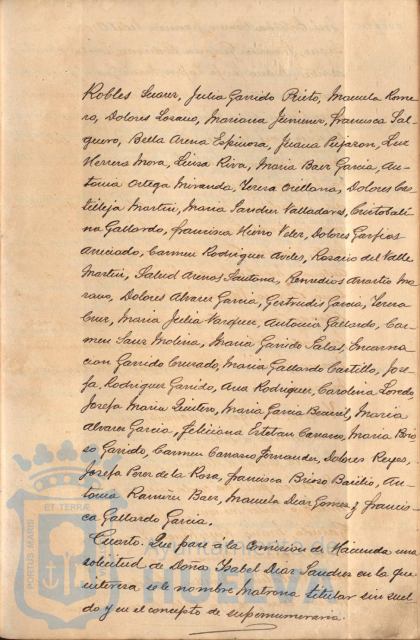 Robles Suarez, Julia Garrido Prieto, Manuela Rome-
ro, Dolores Lozano, Mariana Jimenez, Francisca Sal-
guero, Bella Arena Espinosa, Juana Pejaron, Luz
Herrera Mora, Luisa Riva, Maria Baez Garcia, An-
tonia Ortega Miranda, Teresa Orellana, Dolores Cas-
tilleja Martin, Maria Sanchez Valladares, Cristobali-
na Gallardo, Francisca Hierro Velez, Dolores Garfias
Anciado, Carmen Rodriguez Aviles, Rosario del Valle
Martin, Salud Arenos Santana, Remedios Mo-
rano, Dolores Alvarez Garcia, Gertrudis Garcia, Teresa
Cruz, Maria Julia Vazquez, Antonia Gallardo, Car-
men Sanz Molina, Maria Garrido Salas, Encarna-
cion Garrido Cruzado, Maria Gallardo Castillo, Jose-
fa Rodriguez Garrido, Ana Rodriguez, Carolina Loredo,
Josefa Maria Quintero, Maria Garcia, Maria
Alvarez Garcia, Feliciana Esteban Canano, Maria Brio-
so Garrido, Carmen Canano Fernandez, Dolores Reyes,
Josefa Perez de la Rosa, Francisca Brioso Basilio, An-
tonia Ramirez Baez, Manuela Diaz Gomez y Francis-
ca Gallardo Garcia.
Cuarto. Que pase a la Comision de Hacienda una
solicitud de Doña Isabel Diaz Sanchez en la que
interesa se le nombre Matrona titular sin suel-
do y en el concepto de supernumeraria.
PORTUS MARIS ET TERRAE
Ayuntamiento de
HUELVA